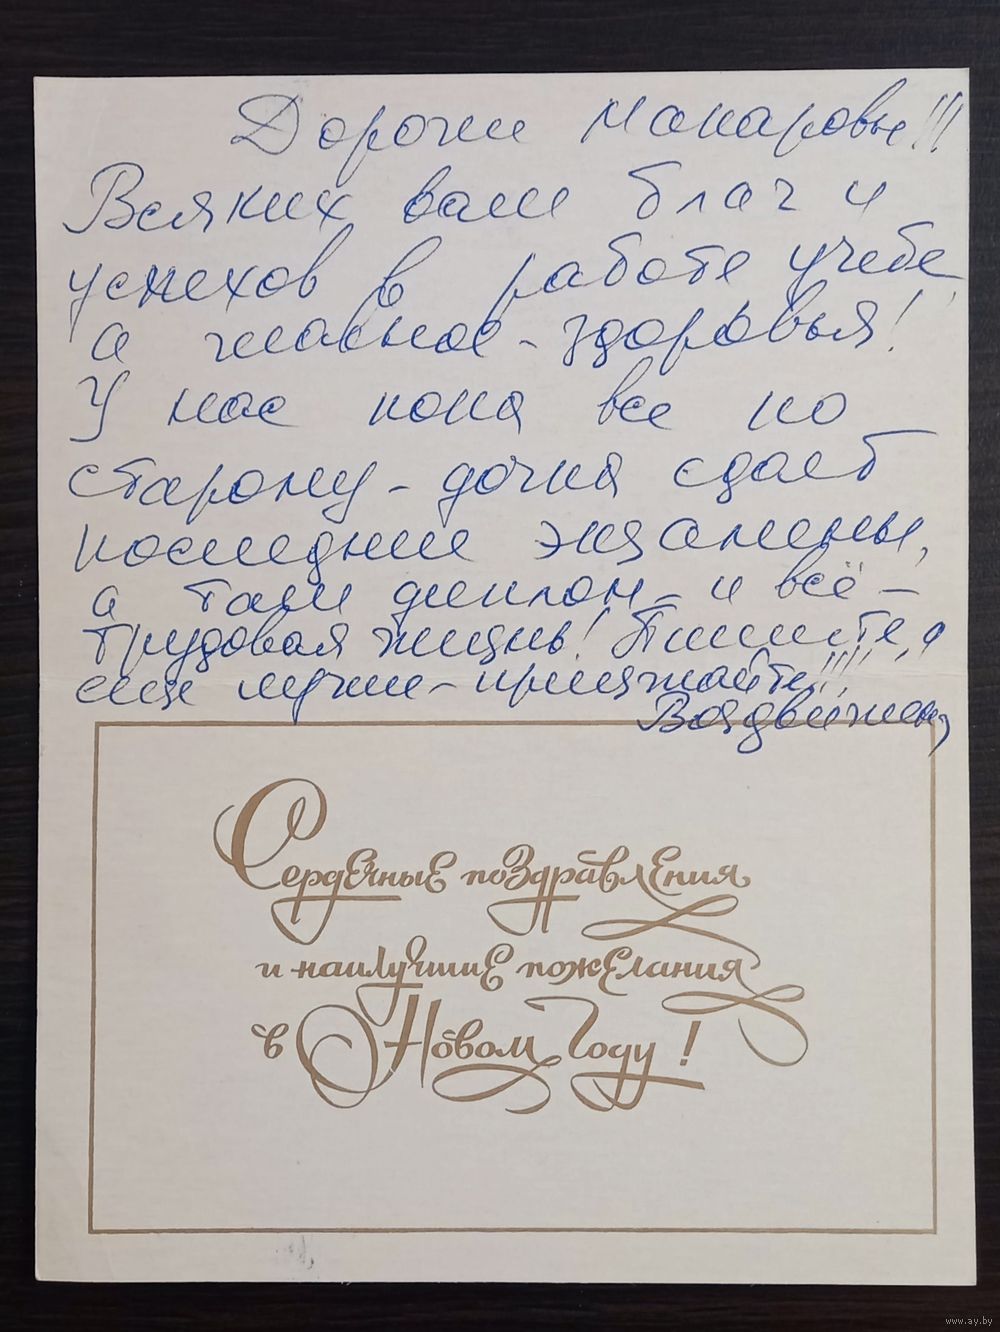 Дорогие Макаровы!!!
Всяких вам благ и
успехов в работе, учебе,
а главное - здоровья!
У нас пока все по
старому - дочка сдает
последние экзамены,
а там диплом - и всё -
трудовая жизнь! Пишите, а
еще лучше - приезжайте!!!!
Сердечные поздравления
и наилучшие пожелания
в Новом году!
www.ay.by